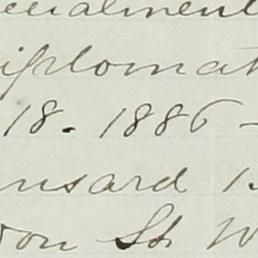 ecialment
iplomat
18. 1886 -
nsard 1.
don St. W